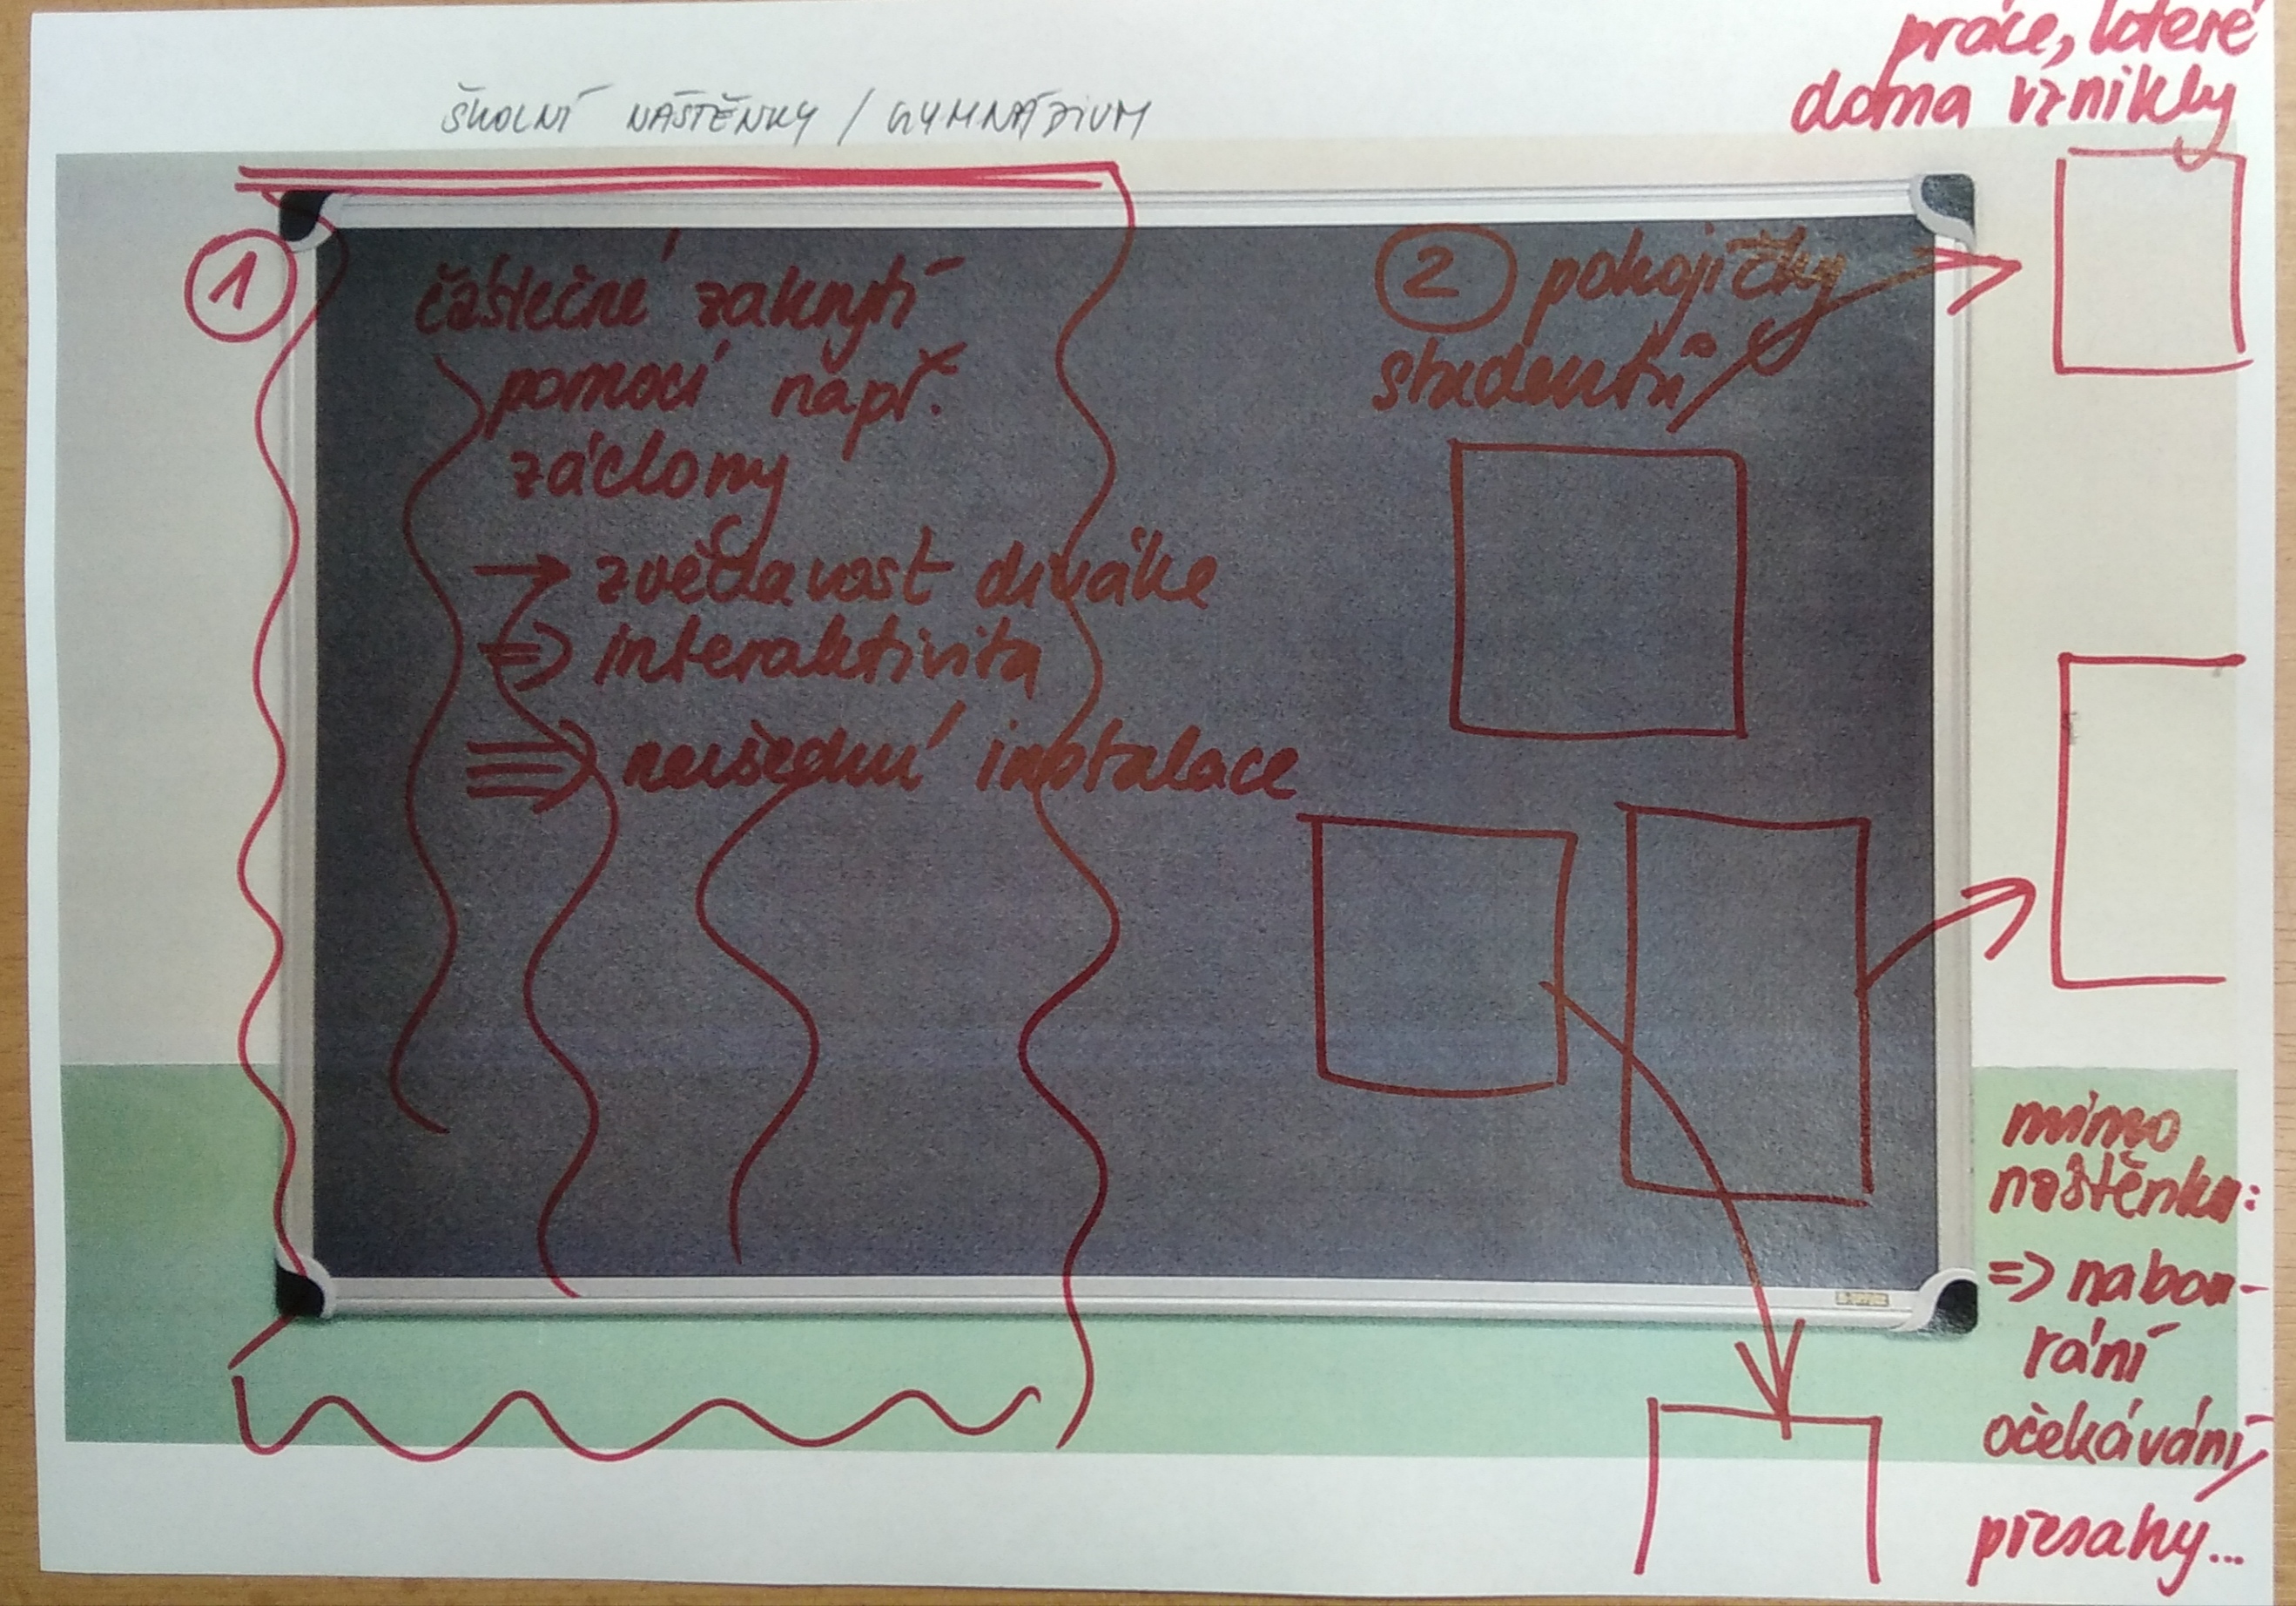 ŠKOLNÍ NÁSTĚNKY / GYMNÁZIUM
práce, které
doma vznikly
1
částečné zakrytí
pomocí např.
záclony
→ zvědavost diváka
⇒ interaktivita
⇒ nevšední instalace
2 pokojíčky
studentů
mimo
nástěnku:
=> nabou-
rání
očekávání/
přesahy...